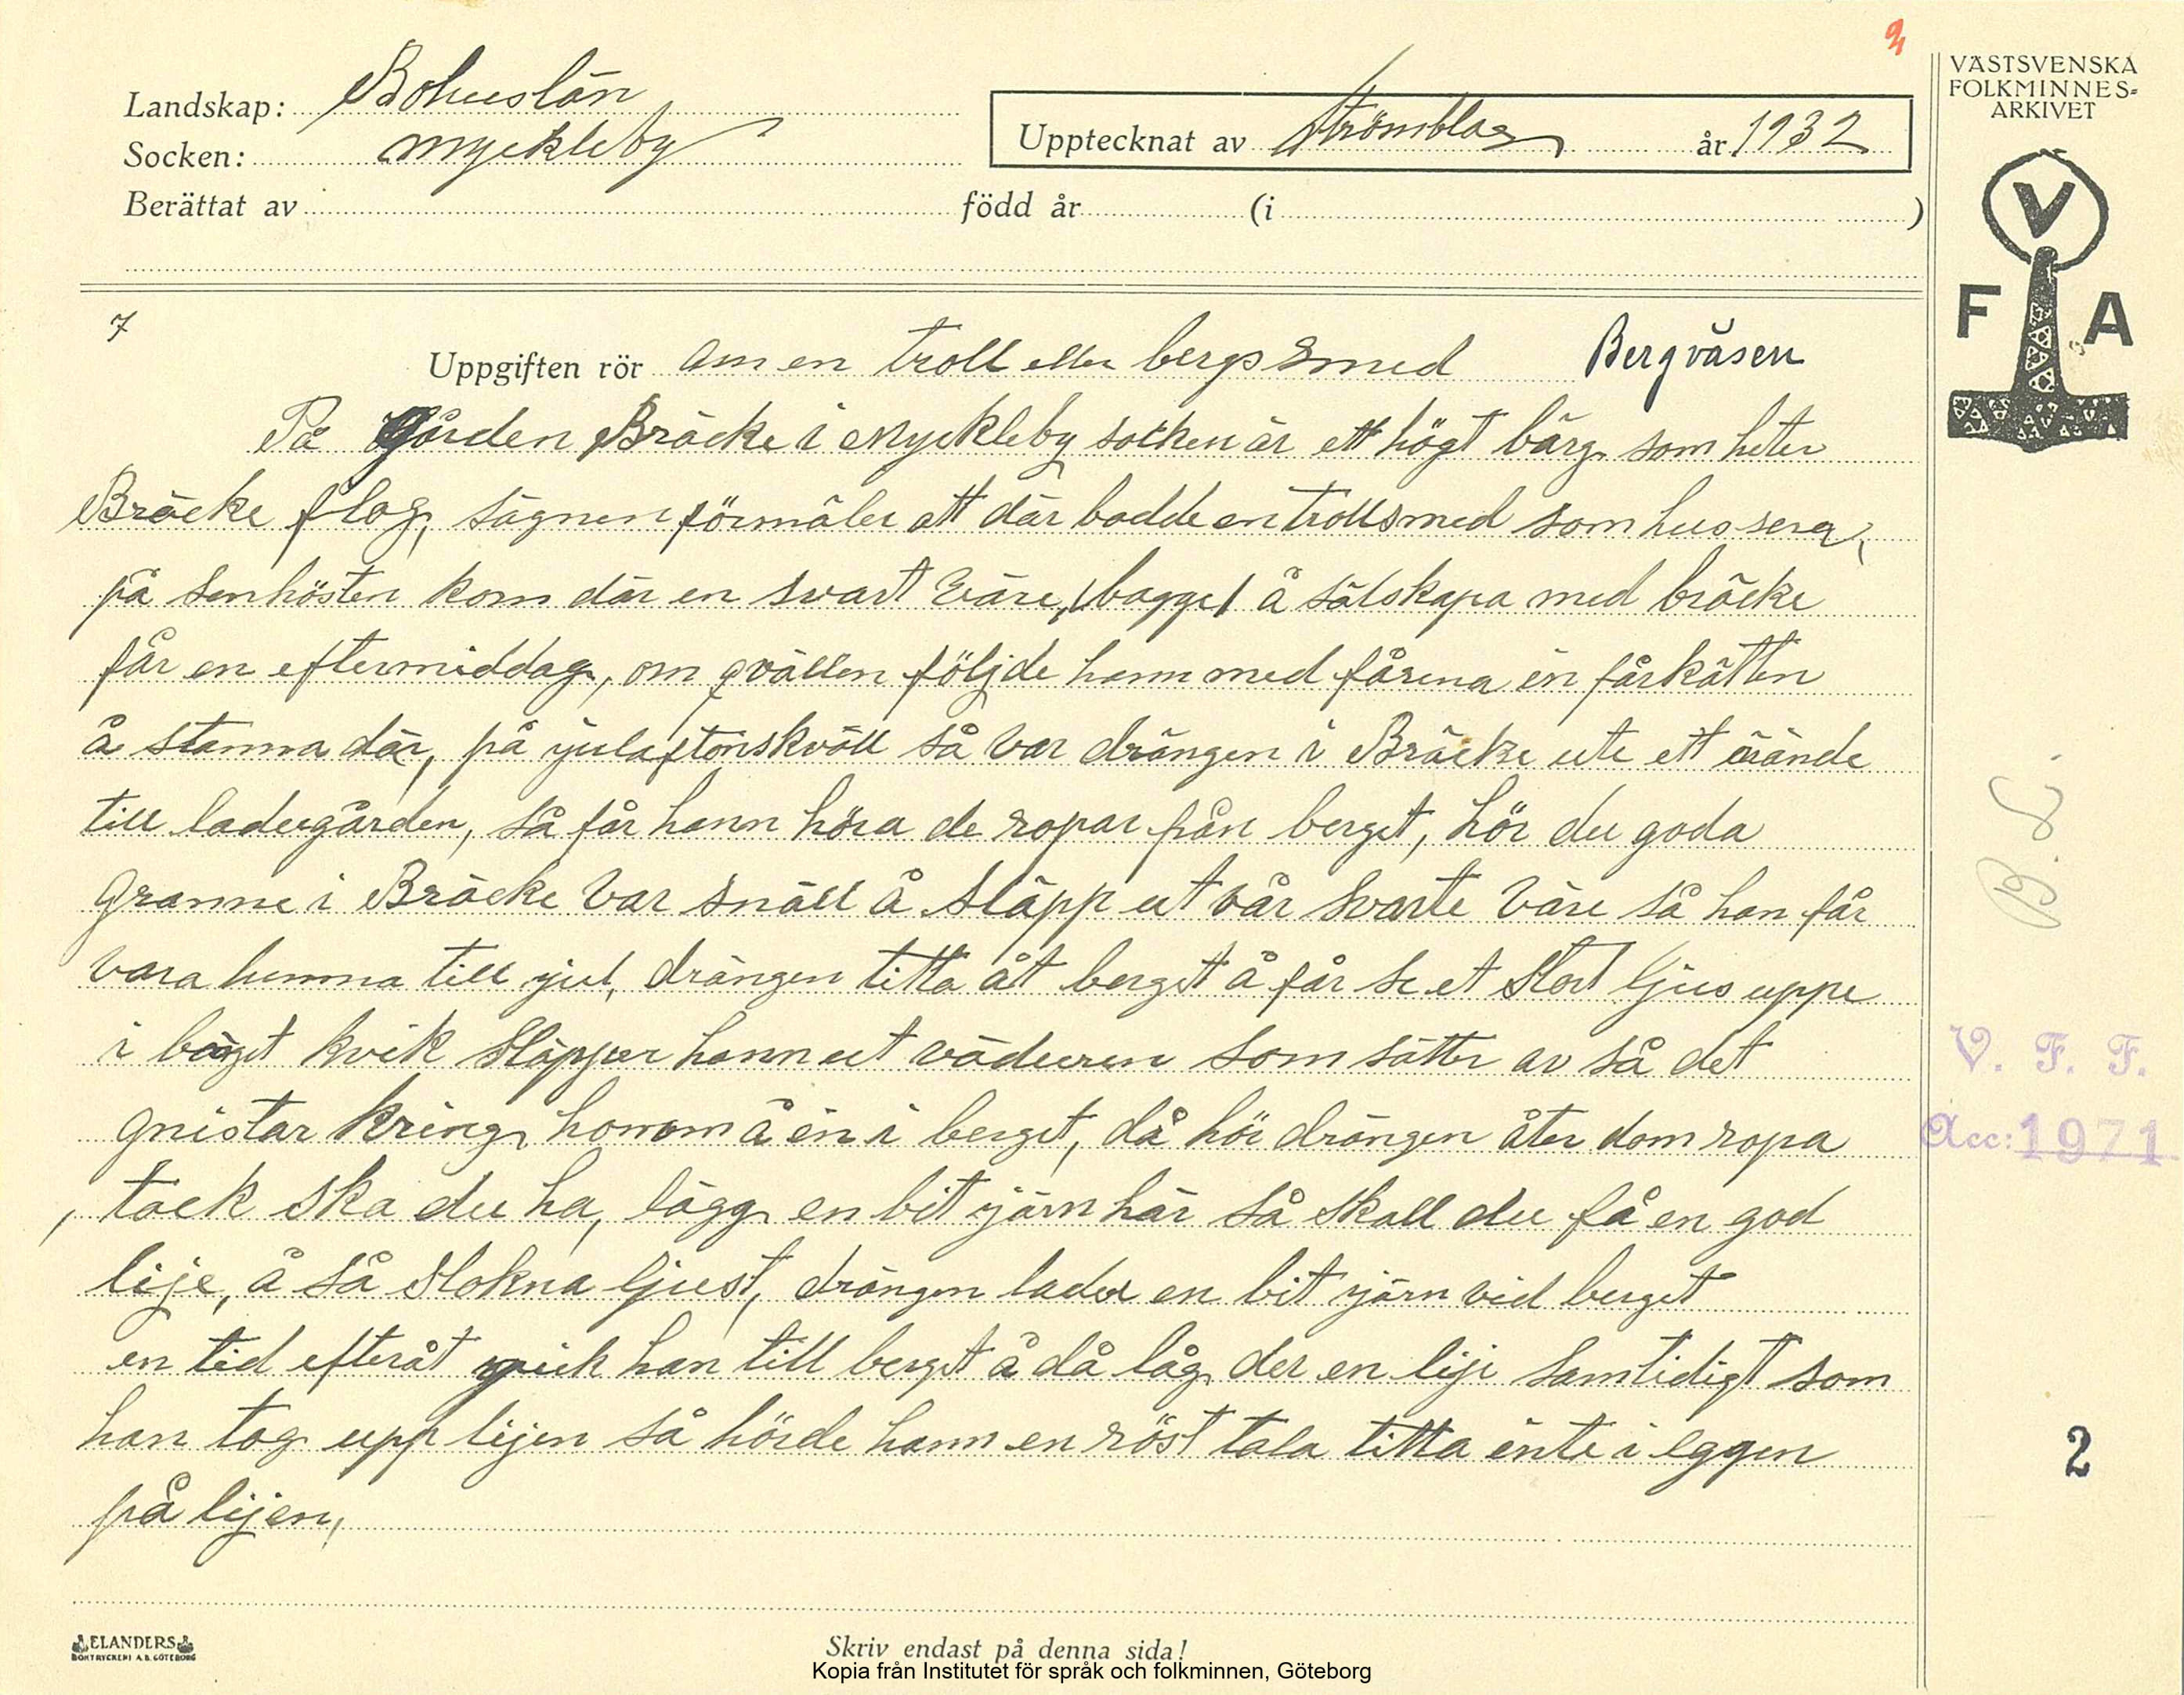 Landskap: Bohuslän
Socken: myckleby
Upptecknat av Strömblag år 1932
Berättat av född år (i )
VÄSTSVENSKA
FOLKMINNES-
ARKIVET
V
F A
7
Uppgiften rör om en troll eller bergs smed Bergväsen
På Gården Bräcke i Myckleby socken är ett högt bärg som heter
Bräcke flog, sägnen förmäler att där bodde en trollsmed som hussera,
på senhösten kom där en svart väre, (bagge) å sälskapa med bräcke
får en eftermiddag, om qvällen följde hann med fårena in fårkätten
å stanna där, på julaftonskväll så var drängen i Bräcke ute ett ärände
till ladugården, så får hann höra de ropar från berget, hör du goda
Granne i Bräcke var snäll å släpp ut vår svarte väre så han får
vara hemma till jul, drängen titta åt berget å får se et stort ljus uppe
i bärget kvik släpper hann ut väduren som sätter av så det
gnistar kring honom å in i berget, då hör drängen åter dom ropa
, tack ska du ha, lägg en bit järn här så skall du få en god
lije, å så slokna ljust, drängen lader en bit järn vid berget
en tid efteråt gick han till berget å då låg der en lije samtidigt som
han tog upp lijen så hörde hann en röst tala titta inte i eggen
på lijen,
V. F. F.
Acc: 1971
2
ELANDERS
BOKTRYCKERI A.B. GÖTEBORG
Skriv endast på denna sida!
Kopia från Institutet för språk och folkminnen, Göteborg